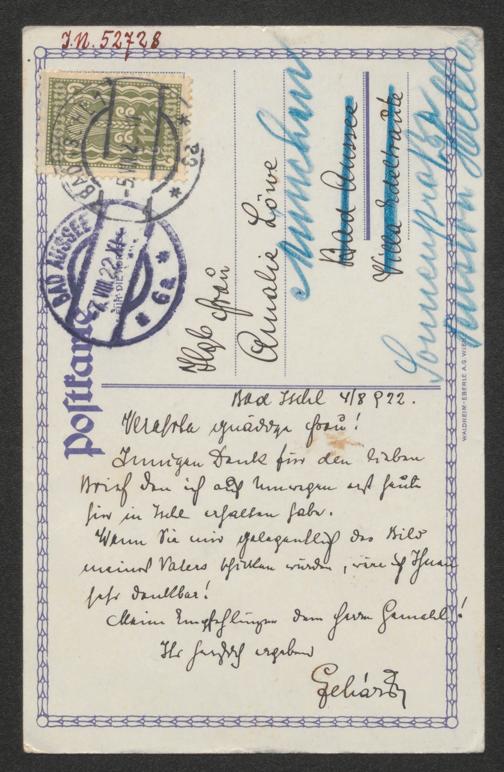 I.N. 52728
BAD AUSSEE
7. VIII. 22
* 6a *
Postkarte
Frau
Amalie Löwe
München
Bad Aussee
Villa
WALDHEIM-EBERLE A.G. WIEN
Bad Ischl 4/8 922.
Verehrte gnädige Frau!
Innigen Dank für den lieben
Brief den ich auf Umwegen erst heute
hier in Ischl erhalten habe.
Wenn Sie mir gelegentlich das Bild
meines Vaters schicken würden, wäre ich Ihnen
sehr dankbar!
Meine Empfehlungen dem Herrn Gemahl!
Ihr herzlich ergebener